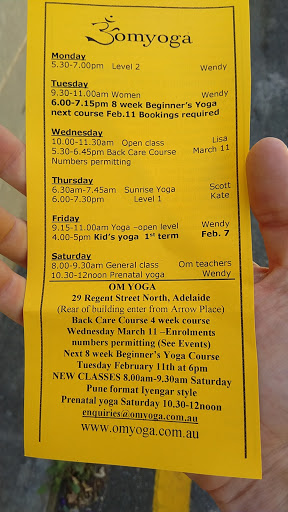 omyoga
Monday
5.30-7.00pm Level 2 Wendy
Tuesday
9.30-11.00am Women Wendy
6.00-7.15pm 8 week Beginner's Yoga
next course Feb.11 Bookings required
Wednesday
10.00-11.30am Open class Lisa
5.30-6.45pm Back Care Course March 11
Numbers permitting
Thursday
6.30am-7.45am Sunrise Yoga Scott
6.00-7.30pm Level 1 Kate
Friday
9.15-11.00am Yoga –open level Wendy
4.00-5pm Kid's yoga 1st term Feb. 7
Saturday
8.00-9.30am General class Om teachers
10.30-12noon Prenatal yoga Wendy
OM YOGA
29 Regent Street North, Adelaide
(Rear of building enter from Arrow Place)
Back Care Course 4 week course
Wednesday March 11 –Enrolments
numbers permitting (See Events)
Next 8 week Beginner's Yoga Course
Tuesday February 11th at 6pm
NEW CLASSES 8.00am-9.30am Saturday
Pune format Iyengar style
Prenatal yoga Saturday 10.30-12noon
enquiries@omyoga.com.au
www.omyoga.com.au